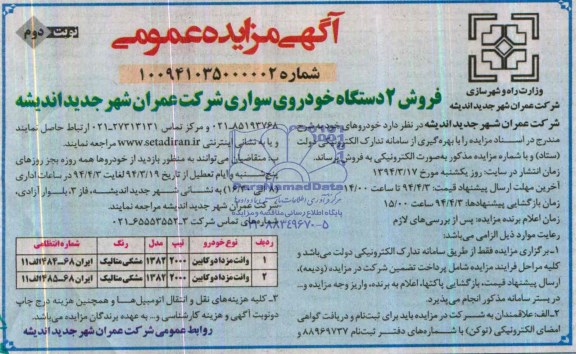 آگهی مزایده عمومی
نوبت دوم
شماره ۱۰۰۹۴۱۰۳۵۰۰۰۰۰۲
وزارت راه و شهرسازی
شرکت عمران شهر جدید اندیشه
فروش ۲ دستگاه خودروی سواری شرکت عمران شهر جدید اندیشه
شرکت عمران شهر جدید اندیشه در نظر دارد خودروهای خود به
مندرج در اسناد مزایده را با بهره‌گیری از سامانه تدارک الکترونیکی دولت
(ستاد) و با شماره مزایده مذکور به‌صورت الکترونیکی به فروش برساند.
زمان انتشار در سایت: روز یکشنبه مورخ ۱۳۹۴/۳/۱۷
آخرین مهلت ارسال پیشنهاد قیمت: ۹۴/۴/۳ ساعت ۱۴/۰۰
زمان بازگشایی پیشنهادها: ۹۴/۴/۳ ساعت ۱۵/۰۰
زمان اعلام برنده مزایده: پس از بررسی‌های لازم
رعایت موارد ذیل الزامی می‌باشد:
۱-برگزاری مزایده فقط از طریق سامانه تدارک الکترونیکی دولت می‌باشد و
کلیه مراحل فرایند مزایده شامل پرداخت تضمین شرکت در مزایده (ودیعه)،
ارسال پیشنهاد قیمت، بازگشایی پاکتها، اعلام به برنده، واریز وجه مزایده و...
در بستر سامانه مذکور انجام می‌پذیرد.
۲-الف: علاقمندان به شرکت در مزایده باید برای ثبت‌نام و دریافت گواهی
امضای الکترونیکی (توکن) با شماره‌های دفتر ثبت‌نام ۸۸۹۶۹۷۳۷ و
۸۵۱۹۳۷۶۸-۰۲۱ و مرکز تماس ۲۷۳۱۳۱۳۱-۰۲۱ ارتباط حاصل نمایند
و یا به نشانی اینترنتی www.setadiran.ir مراجعه نمایند.
ب- متقاضیان می‌توانند به منظور بازدید از خودروها همه روزه بجز روزهای
پنج‌شنبه و ایام تعطیل از تاریخ ۹۴/۳/۱۹ لغایت ۹۴/۴/۳ در ساعات اداری
به نشانی شهر جدید اندیشه، فاز ۳، بلوار آزادی،
شرکت عمران شهر جدید اندیشه مراجعه نمایند.
شماره‌های تماس ۳-۶۵۵۵۳۵۵۲-۰۲۱
ردیف نوع خودرو تیپ مدل رنگ شماره انتظامی
۱ وانت مزدا دو کابین ۲۰۰۰ ۱۳۸۲ مشکی متالیک ایران ۶۸-۴۸۳ الف ۱۱
۲ وانت مزدا دو کابین ۲۰۰۰ ۱۳۸۲ مشکی متالیک ایران ۶۸-۴۸۲ الف ۱۱
۳-کلیه هزینه‌های نقل و انتقال اتومبیل‌ها و همچنین هزینه درج چاپ
دو نوبت آگهی و هزینه کارشناسی و... به عهده برندگان مزایده می‌باشد.
روابط عمومی شرکت عمران شهر جدید اندیشه
ParsNamadData
پایگاه اطلاع رسانی مناقصه و مزایده
۰۲۱-۸۸۳۴۹۶۷۰-۵